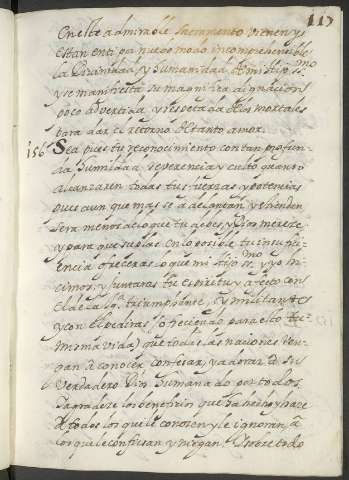 117
En este admirable Sacramento vienen, y
estan en ti por nuevo modo incomprehensible
la Divinidad, y humanidad de mi hijo ssmo
y se manifiesta su magnifica dignacion
poco advertida, y respetada de los mortales
para dar el retorno de tanto amor.
156 Sea pues tu reconocimiento con tan profun-
da humildad, reverencia y culto quanto
alcanzaren todas tus fuerzas y potencias
pues aun que mas se adelantan, y estienden
sera menos de lo que tu debes, y Dios merece
y para que suplas en lo posible tu insufi-
ciencia ofreceras lo que mi hijo ssmo y yo hi-
cimos, y juntaras tu espiritu y afecto con
el de la Iga triumphante, y militante
y con el pediras (ofreciendo para esto tu
misma vida) que todas las naciones ven-
gan a conocer confesar, y adorar a su
verdadero Dios humanado por todos.
Y agradece los beneficios que ha hecho y hace
a todos los que le conocen y le ignoran, a
los que le confiesan y niegan. Y sobre todo